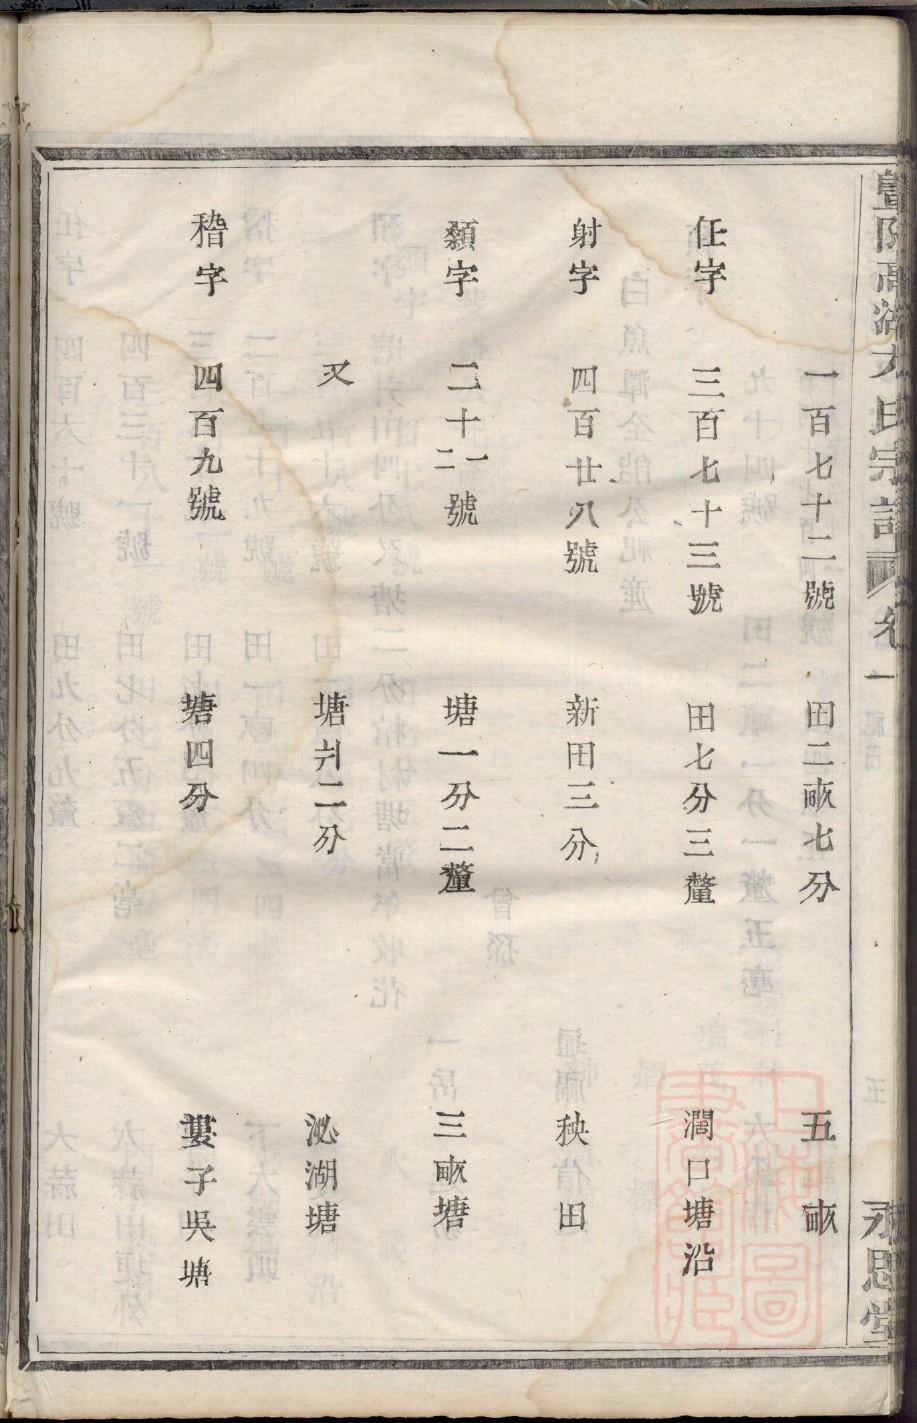 一百七十二號 田二畝七分 五畝
任字 三百七十三號 田七分三釐 濶口塘沿
射字 四百廿八號 新田三分 秧田
纇字 二十一二號 塘一分二釐 三畝塘
又 塘廾二分 泌湖塘
稽字 四百九號 塘四分 婁子吳塘
氏宗譜 卷一 永思堂